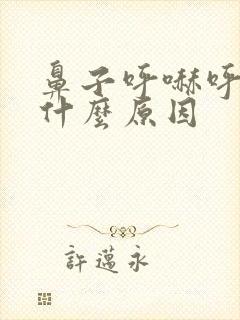 鼻子呼嚇呼
什麼原因
許邁永